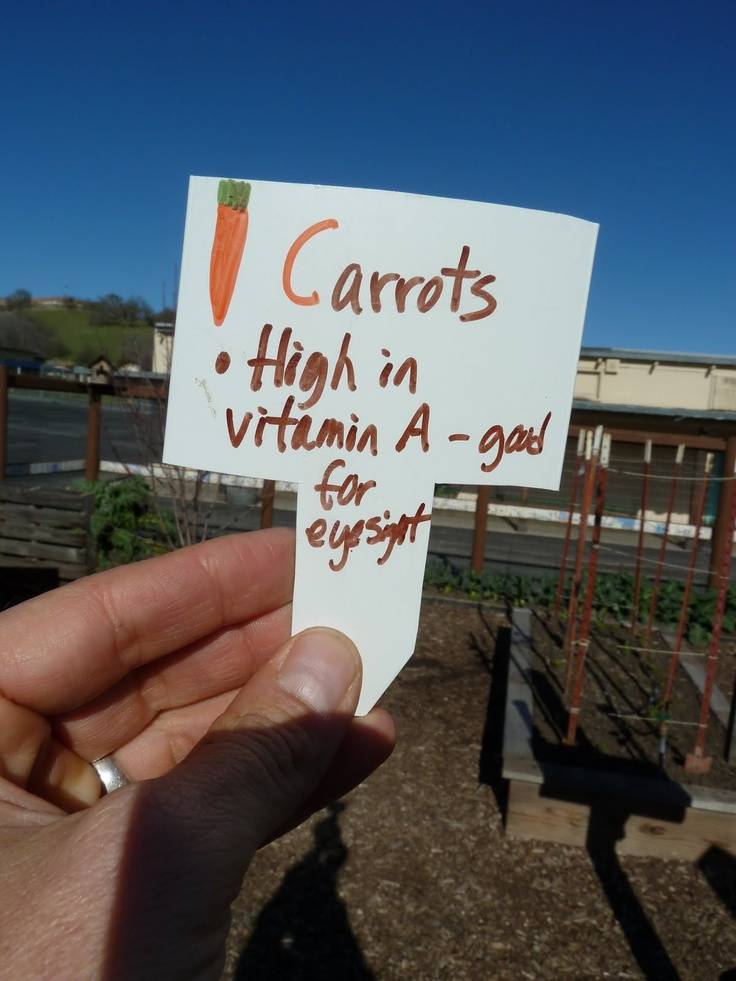 Carrots
• High in
vitamin A - good
for
eyesight